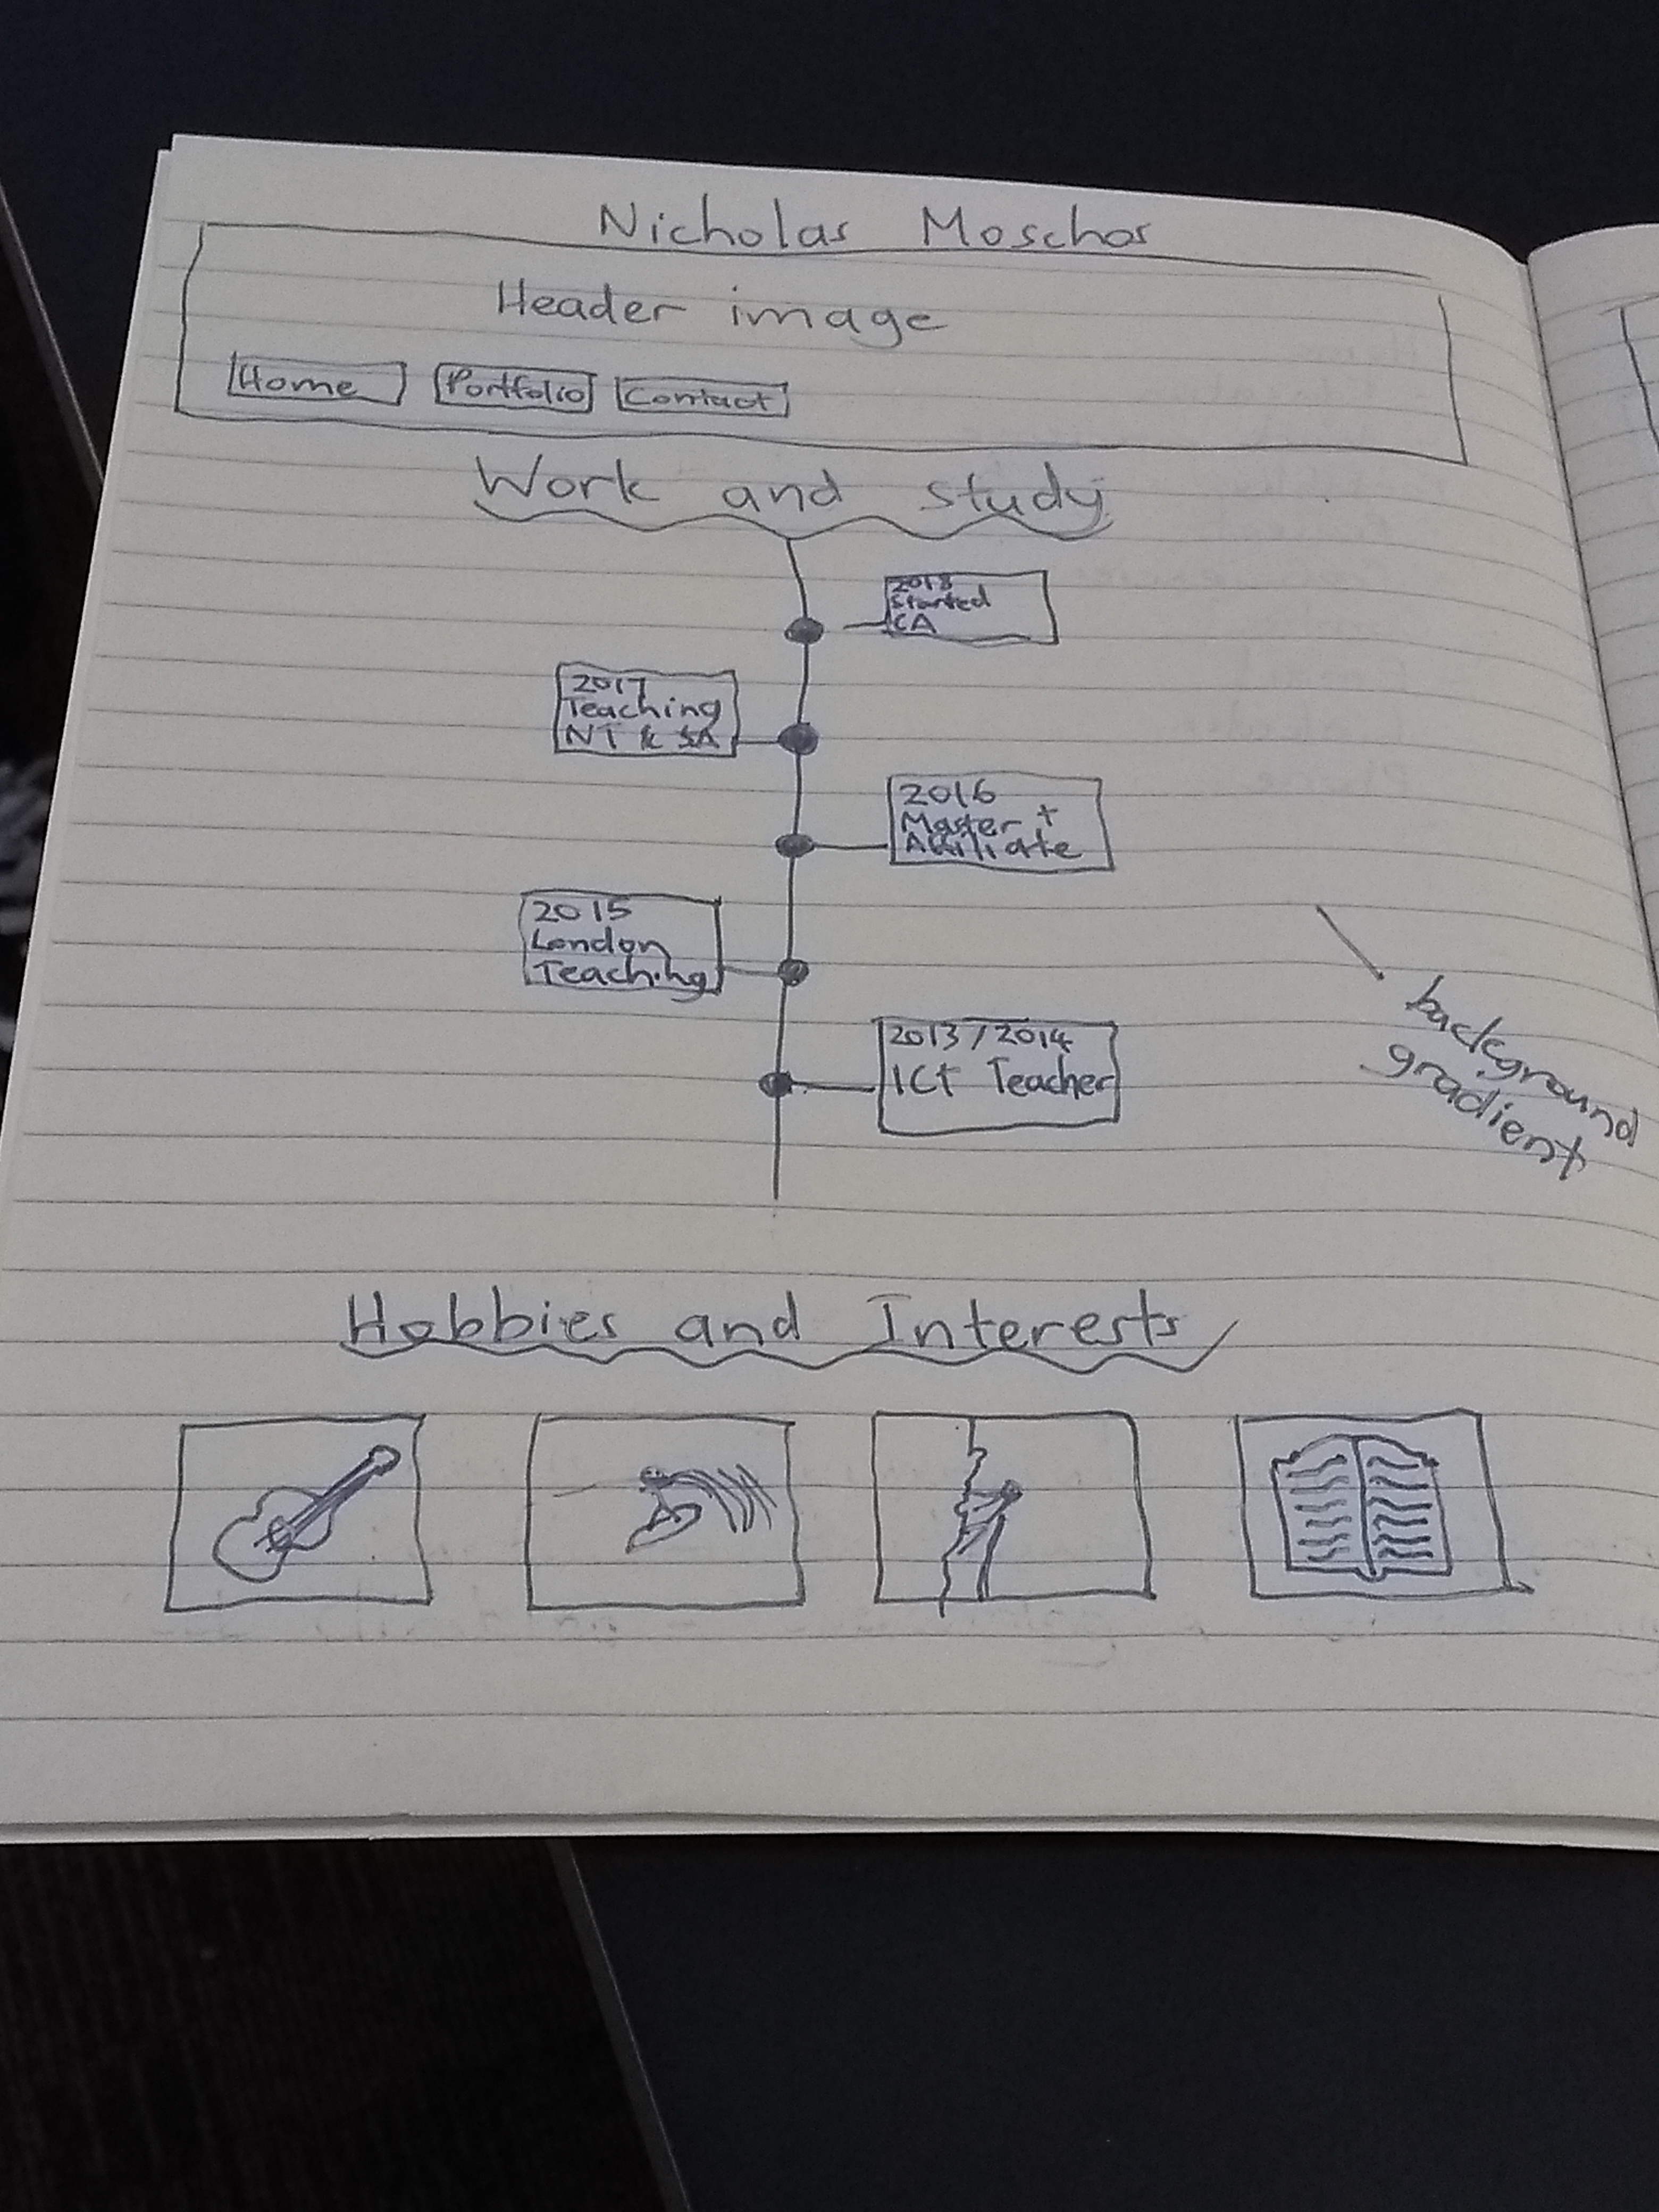 Nicholas Moschos
Header image
Home
Portfolio
Contact
Work and study
2018
Started
CA
2017
Teaching
NT & SA
2016
Master +
Affiliate
2015
London
Teaching
2013/2014
ICT Teacher
background
gradient
Hobbies and Interests